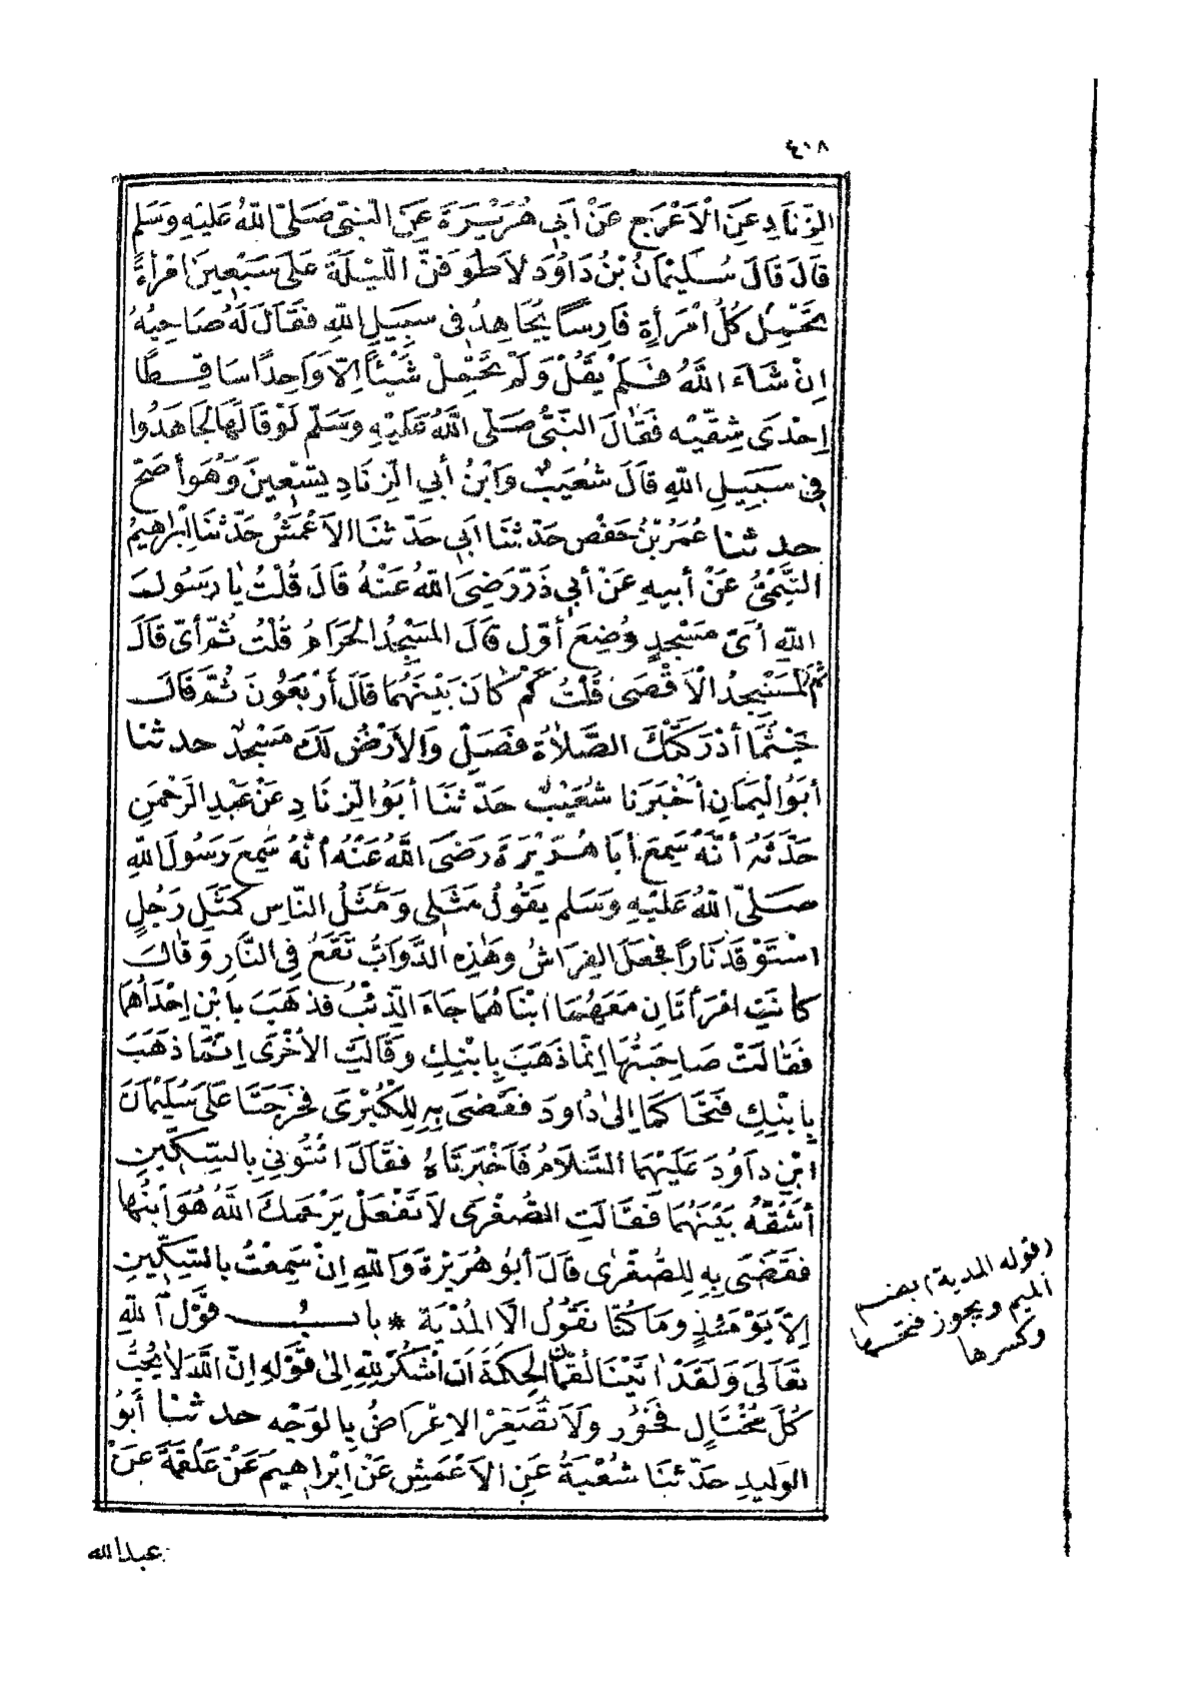 ٤١٨
الزِّنَادِ عَنِ الْأَعْرَجِ عَنْ أَبِي هُرَيْرَةَ عَنِ النَّبِيِّ صَلَّى اللَّهُ عَلَيْهِ وَسَلَّمَ
قَالَ قَالَ سُلَيْمَانُ بْنُ دَاوُدَ لَأَطُوفَنَّ اللَّيْلَةَ عَلَى سَبْعِينَ امْرَأَةً
تَحْمِلُ كُلُّ امْرَأَةٍ فَارِسًا يُجَاهِدُ فِي سَبِيلِ اللَّهِ فَقَالَ لَهُ صَاحِبُهُ
إِنْ شَاءَ اللَّهُ فَلَمْ يَقُلْ وَلَمْ تَحْمِلْ شَيْئًا إِلَّا وَاحِدًا سَاقِطًا
إِحْدَى شِقَّيْهِ فَقَالَ النَّبِيُّ صَلَّى اللَّهُ عَلَيْهِ وَسَلَّمَ لَوْ قَالَهَا لَجَاهَدُوا
فِي سَبِيلِ اللَّهِ قَالَ شُعَيْبٌ وَابْنُ أَبِي الزِّنَادِ تِسْعِينَ وَهُوَ أَصَحُّ
حدثنا عُمَرُ بْنُ حَفْصٍ حَدَّثَنَا أَبِي حَدَّثَنَا الْأَعْمَشُ حَدَّثَنَا إِبْرَاهِيمُ
التَّيْمِيُّ عَنْ أَبِيهِ عَنْ أَبِي ذَرٍّ رَضِيَ اللَّهُ عَنْهُ قَالَ قُلْتُ يَا رَسُولَ
اللَّهِ أَيُّ مَسْجِدٍ وُضِعَ أَوَّلَ قَالَ الْمَسْجِدُ الْحَرَامُ قُلْتُ ثُمَّ أَيٌّ قَالَ
ثُمَّ الْمَسْجِدُ الْأَقْصَى قُلْتُ كَمْ كَانَ بَيْنَهُمَا قَالَ أَرْبَعُونَ ثُمَّ قَالَ
حَيْثُمَا أَدْرَكَتْكَ الصَّلَاةُ فَصَلِّ وَالْأَرْضُ لَكَ مَسْجِدٌ حدثنا
أَبُو الْيَمَانِ أَخْبَرَنَا شُعَيْبٌ حَدَّثَنَا أَبُو الزِّنَادِ عَنْ عَبْدِ الرَّحْمَنِ
حَدَّثَهُ أَنَّهُ سَمِعَ أَبَا هُرَيْرَةَ رَضِيَ اللَّهُ عَنْهُ أَنَّهُ سَمِعَ رَسُولَ اللَّهِ
صَلَّى اللَّهُ عَلَيْهِ وَسَلَّمَ يَقُولُ مَثَلِي وَمَثَلُ النَّاسِ كَمَثَلِ رَجُلٍ
اسْتَوْقَدَ نَارًا فَجَعَلَ الْفَرَاشُ وَهَذِهِ الدَّوَابُّ تَقَعُ فِي النَّارِ وَقَالَ
كَانَتِ امْرَأَتَانِ مَعَهُمَا ابْنَاهُمَا جَاءَ الذِّئْبُ فَذَهَبَ بِابْنِ إِحْدَاهُمَا
فَقَالَتْ صَاحِبَتُهَا إِنَّمَا ذَهَبَ بِابْنِكِ وَقَالَتِ الْأُخْرَى إِنَّمَا ذَهَبَ
بِابْنِكِ فَتَحَاكَمَا إِلَى دَاوُدَ فَقَضَى بِهِ لِلْكُبْرَى فَخَرَجَتَا عَلَى سُلَيْمَانَ
ابْنِ دَاوُدَ عَلَيْهِمَا السَّلَامُ فَأَخْبَرَتَاهُ فَقَالَ ائْتُونِي بِالسِّكِّينِ
أَشُقُّهُ بَيْنَهُمَا فَقَالَتِ الصُّغْرَى لَا تَفْعَلْ يَرْحَمُكَ اللَّهُ هُوَ ابْنُهَا
فَقَضَى بِهِ لِلصُّغْرَى قَالَ أَبُو هُرَيْرَةَ وَاللَّهِ إِنْ سَمِعْتُ بِالسِّكِّينِ
إِلَّا يَوْمَئِذٍ وَمَا كُنَّا نَقُولُ إِلَّا الْمُدْيَةَ * بابُ قَوْلِ اللَّهِ
تَعَالَى وَلَقَدْ آتَيْنَا لُقْمَانَ الْحِكْمَةَ أَنِ اشْكُرْ لِلَّهِ إِلَى قَوْلِهِ إِنَّ اللَّهَ لَا يُحِبُّ
كُلَّ مُخْتَالٍ فَخُورٍ وَلَا تُصَعِّرْ الْإِعْرَاضُ بِالْوَجْهِ حدثنا أَبُو
الْوَلِيدِ حَدَّثَنَا شُعْبَةُ عَنِ الْأَعْمَشِ عَنْ إِبْرَاهِيمَ عَنْ عَلْقَمَةَ عَنْ
(قوله المدية) بضم
الميم ويجوز فتحها
وكسرها
عبدالله